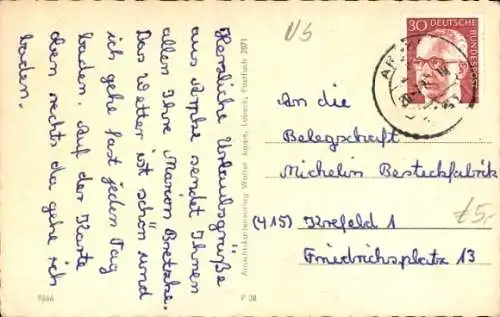 Herzliche Urlaubsgrüße
aus Arpke sendet Ihnen
allen Ihre Marion Bretzke.
Das Wetter ist schön und
ich gehe fast jeden Tag
baden. Auf der Karte
den rechts da gehe ich
baden.
Ansichtskartenverlag Walter Jappe, Lübeck, Postfach 2071
9866
P 08
US
30 DEUTSCHE BUNDESPOST
An die
Belegschaft
Michelin Besteckfabrik
(415) Krefeld 1
Friedrichsplatz 13
£5,-